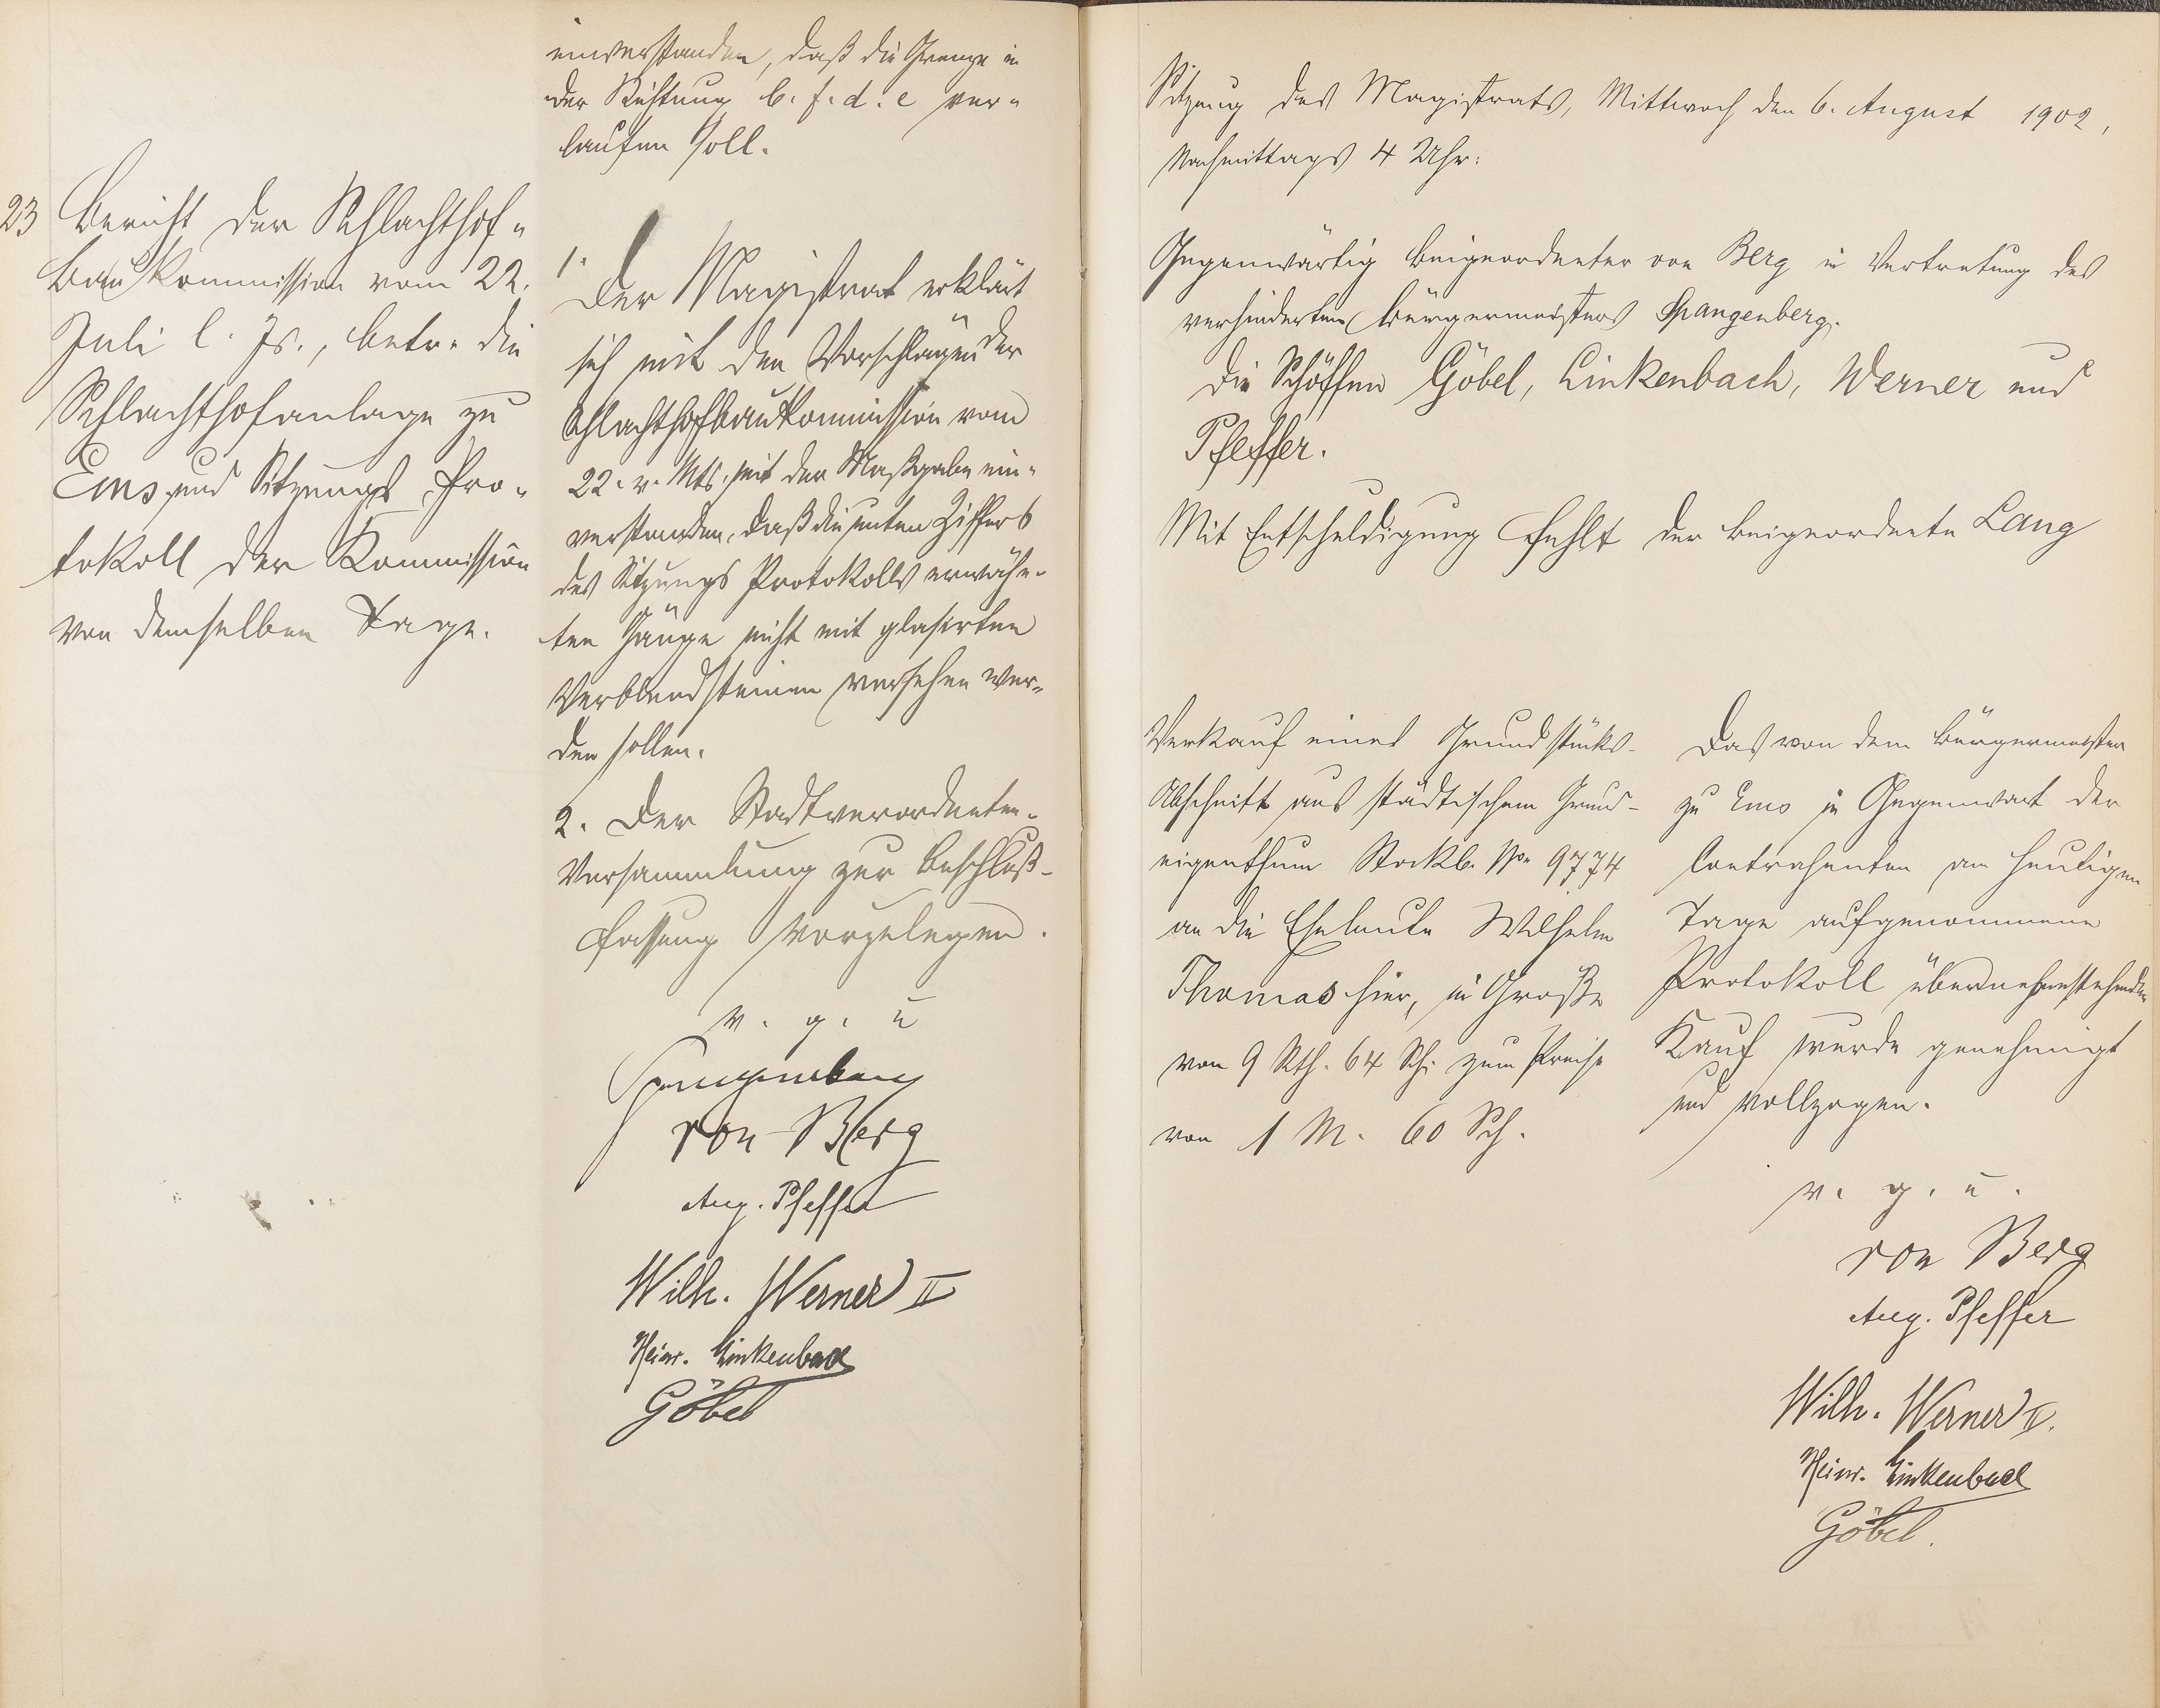 einverstanden, daß die Grenze in
der Richtung b. f. d. e ver-
laufen soll.
23 Bericht der Schlachthof-
bau Kommission vom 22.
Juli l. Js., betr. die
Schlachthofanlage zu
Ems und Sitzungs Pro-
tokoll der Kommission
von demselben Tage.
1.
Der Magistrat erklärt
sich mit den Vorschlägen der
Schlachthofbaukommission vom
22. v. Mts. mit der Maßgabe ein-
verstanden, daß die unter Ziffer 6
des Sitzungs Protokolls erwähn-
ten Gänge nicht mit glasirten
Verblendsteinen versehen wer-
den sollen.
2. Der Stadtverordneten-
Versammlung zur Beschluß-
fassung vorzulegen.
v. g. u
Spangenberg
von Berg
Aug. Pfeffer
Wilh. Werner II
Heinr. Linkenbach
Göbel
Sitzung des Magistrats, Mittwoch den 6. August 1902,
Nachmittags 4 Uhr.
Gegenwärtig Beigeordneter von Berg in Vertretung des
verhinderten Bürgermeisters Spangenberg.
Die Schöffen Göbel, Linkenbach, Werner und
Pfeffer.
Mit Entschuldigung fehlt der Beigeordnete Lang
Verkauf eines Grundstücks-
Abschnitt aus städtischem Grund-
eigenthum Stockb. No 9774
an die Eheleute Wilhelm
Thomas hier, in Größe
von 9 Rth. 64 Sch. zum Preise
von 1 M. 60 Sch.
Das von dem Bürgermeister
zu Ems in Gegenwart der
Contrahenten am heutigen
Tage aufgenommene
Protokoll über nebenstehenden
Kauf wurde genehmigt
und vollzogen.
v. g. u.
von Berg
Aug. Pfeffer
Wilh. Werner II.
Heinr. Linkenbach
Göbel.